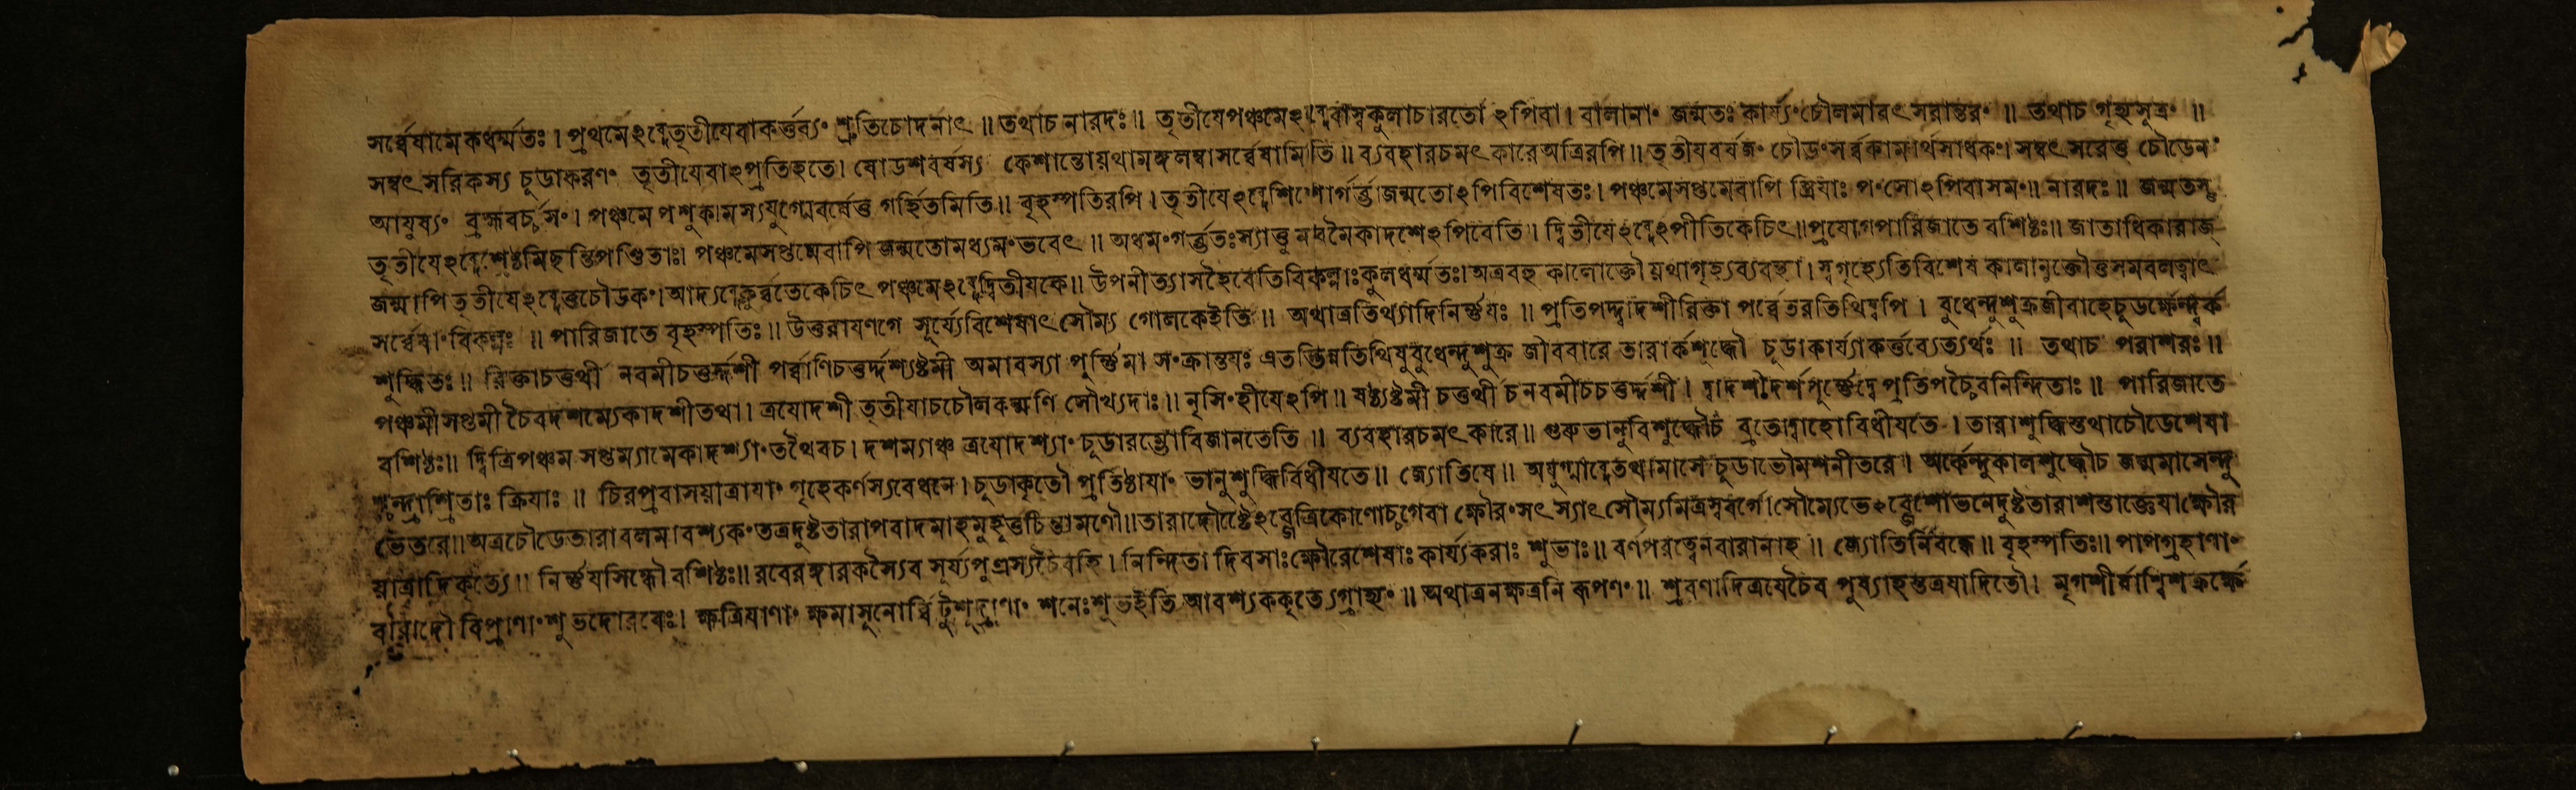 সর্ব্বেষামেকধর্ম্মতঃ। প্রথমেঽব্দেতৃতীযেবাকর্ত্তব্যং শ্রুতিচোদনাৎ॥ তথাচ নারদঃ॥ তৃতীযেপঞ্চমেঽব্দেবাস্বকুলাচারতোঽপিবা। বালানাং জন্মতঃ কার্য্যং চৌলমাবৎসরান্তরং॥ তথাচ গৃহ্যসূত্রং॥
সম্বৎসরিকস্য চূডাকরণং তৃতীযেবাঽপ্রতিহতে। ষোডশবর্ষস্য কেশান্তোযথামঙ্গলম্বাসর্ব্বেষামিতি॥ ব্যবহারচমৎকারেঅত্রিরপি॥ তৃতীযবর্ষজং চৌডংসর্ব্বকামার্থসাধকং। সম্বৎসরেত্তু চৌডেন
আযুষ্যং ব্রহ্মবর্চ্চসং। পঞ্চমে পশুকামস্যযুগ্মেবর্ষেত্তু গর্হিতমিতি॥ বৃহস্পতিরপি। তৃতীযেঽব্দেশিশোর্গর্ত্তাজ্জন্মতোঽপিবিশেষতঃ। পঞ্চমেসপ্তমেবাপি স্ত্রিযাঃ পংসোঽপিবাসমং॥ নারদঃ॥ জন্মতস্তু
তৃতীযেঽব্দেশ্রেষ্ঠমিছন্তিপণ্ডিতাঃ। পঞ্চমেসপ্তমেবাপি জন্মতোমধ্যমংভবেৎ॥ অধমংগর্ত্ততঃস্যাত্তু নবমৈকাদশেঽপিবেতি। দ্বিতীযেঽব্দেঽপীতিকেচিৎ॥ প্রযোগপারিজাতে বশিষ্ঠঃ॥ জাতাধিকারাজ্
জন্মাপি তৃতীযেঽব্দেত্তুচৌডকং। আদ্যেব্দেকুর্ব্বতেকেচিৎ পঞ্চমেঽব্দেদ্বিতীযকে॥ উপনীত্যাসহৈবেতিবিকল্পাঃকুলধর্ম্মতঃ। অত্রবহু কালোক্তৌ যথাগৃহ্যব্যবস্থা। স্বগৃহ্যেতিবিশেষ কালানুক্তৌত্তুসমবলত্বাৎ
সর্ব্বেষাংবিকল্পঃ॥ পারিজাতে বৃহস্পতিঃ॥ উত্তরাযণগে সূর্য্যেবিশেষাৎসৌম্য গোলকেইতি॥ অথাত্রতিথ্যাদিনির্ণ্ণযঃ॥ প্রতিপদ্দ্বাদশীরিক্তা পর্ব্বেতরতিথিষ্বপি। বুধেন্দুশুক্রজীবাহেচূডর্ক্ষেন্দ্বর্ক
শুদ্ধিতঃ॥ রিক্তাচত্তুর্থী নবমীচত্তুর্দ্দশী পর্ব্বাণিচত্তুর্দ্দশ্যষ্টমী অমাবস্যা পুর্ণ্ণিমা সংক্রান্তযঃ এতদ্ভিন্নতিথিষুবুধেন্দুশুক্র জীববারে তারার্কশুদ্ধৌ চূডাকার্য্যাকর্ত্তব্যেত্যর্থঃ॥ তথাচ পরাশরঃ॥
পঞ্চমীসপ্তমী চৈবদশম্যেকাদশীতথা। ত্রযোদশী তৃতীযাচচৌলকর্ম্মণি সৌখ্যদাঃ॥ নৃসিংহীযেঽপি॥ ষষ্ঠ্যষ্টমী চত্তুর্থী চনবমীচচত্তুর্দ্দশী। দ্বাদশীদর্শপূর্ণ্ণেদ্বেপ্রতিপচ্চৈবনিন্দিতাঃ॥ পারিজাতে
বশিষ্ঠঃ॥ দ্বিত্রিপঞ্চম সপ্তম্যামেকাদশ্যাংতথৈবচ। দশম্যাঞ্চ ত্রযোদশ্যাং চূডারম্ভোবিজানতেতি॥ ব্যবহারচমৎকারে॥ গুরুভানুবিশুদ্ধৌচ ব্রতোদ্বাহোবিধীযতে। তারাশুদ্ধিস্তথাচৌডেশেষা
শ্চন্দ্রাশ্রিতাঃ ক্রিযাঃ॥ চিরপ্রবাসযাত্রাযাং গৃহেকর্ণস্যবেধনে। চূডাকৃতৌ প্রতিষ্ঠাযাং ভানুশুদ্ধির্বিধীযতে॥ জ্যোতিষে॥ অযুগ্মাব্দেতথামাসে চূডাভৌমশনীতরে। অর্কেন্দুকালশুদ্ধৌচ জন্মমাসেন্দু
ভেতরে॥ অত্রচৌডেতারাবলমাবশ্যকং তত্রদুষ্টতারাপবাদমাহমুহূত্তচিন্তামণৌ॥ তারাদৌষ্ট্যেঽব্জেত্রিকোণোচ্চগেবা ক্ষৌরংসৎস্যাৎসৌম্যমিত্রস্ববর্গে। সৌম্যেভেঽব্জেশোভনেদুষ্টতারাশস্তাজ্ঞেযাক্ষৌর
যাত্রাদিকৃত্যে॥ নির্ণ্ণযসিন্ধৌ বশিষ্ঠঃ॥ রবেরঙ্গারকস্যৈব সূর্য্যপুত্রস্যচৈবহি। নিন্দিতা দিবসাঃক্ষৌরেশেষাঃ কার্য্যকরাঃ শুভাঃ॥ বর্ণপরত্বেনবারানাহ॥ জ্যোতির্নিবন্ধে॥ বৃহস্পতিঃ॥ পাপগ্রহাণাং
বারাদৌ বিপ্রাণাংশুভদোরবেঃ। ক্ষত্রিযাণাং ক্ষমাসূনোর্ব্বিট্শূদ্রাণাং শনেঃশুভইতি আবশ্যককৃত্যেগ্রাহ্যং॥ অথাত্রনক্ষত্রনিরূপণং॥ শ্রবণাদিত্রযেচৈব পুষ্যাহস্তত্রযাদিতৌ। মৃগশীর্ষাশ্বিশক্রর্ক্ষে